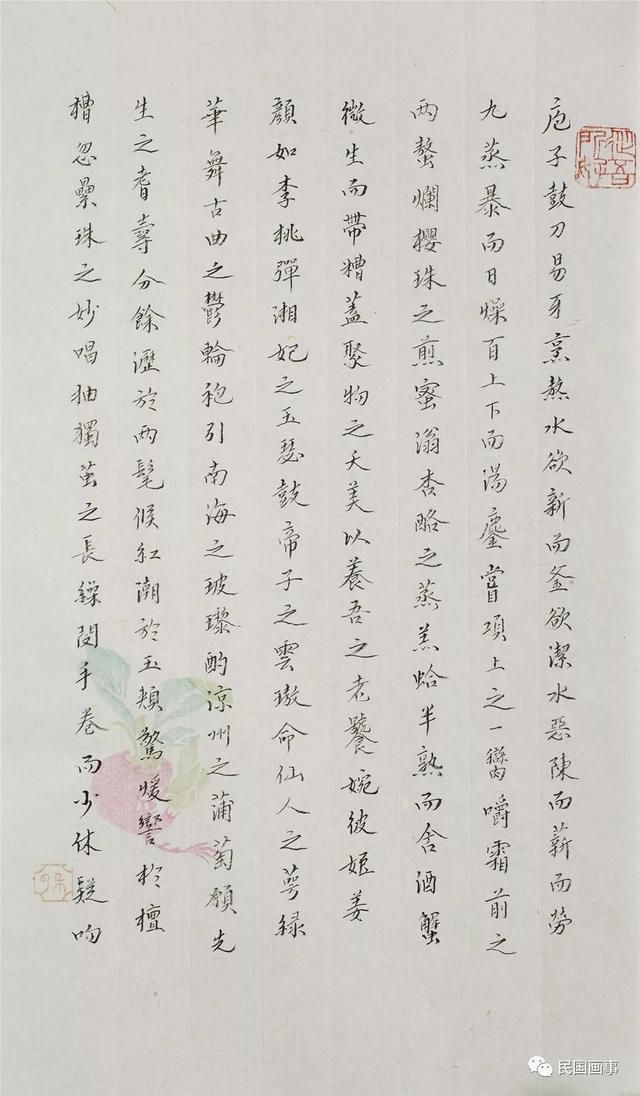 從吾所好
庖子鼓刀易牙烹熬水欲新而釜欲潔水惡陳而薪而勞
九蒸暴而日燥百上下而湯鏖嘗項上之一臠嚼霜前之
兩螯爛櫻珠之煎蜜滃杏酪之蒸羔蛤半熟而含酒蟹
微生而帶糟蓋聚物之夭美以養吾之老饕婉彼姬姜
顏如李桃彈湘妃之玉瑟鼓帝子之雲璈命仙人之萼綠
華舞古曲之鬱輪袍引南海之玻瓈酌涼州之蒲萄願先
生之耆壽分餘瀝於兩髦候紅潮於玉頰驚煖響於檀
槽忽纍珠之妙唱抽獨繭之長繰閔手卷而少休疑吻
民国画事